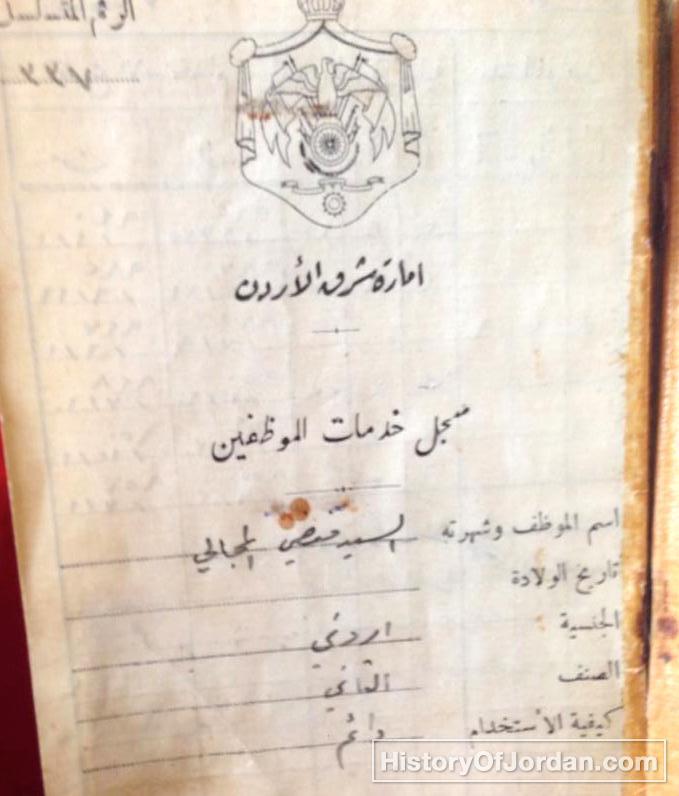 الرقم المتسلسل
امارة شرق الأردن
سجل خدمات الموظفين
اسم الموظف وشهرته السيد المجالي
تاريخ الولادة
الجنسية اردني
الصنف الثاني
كيفية الأستخدام دائم
HistoryOfJordan.com